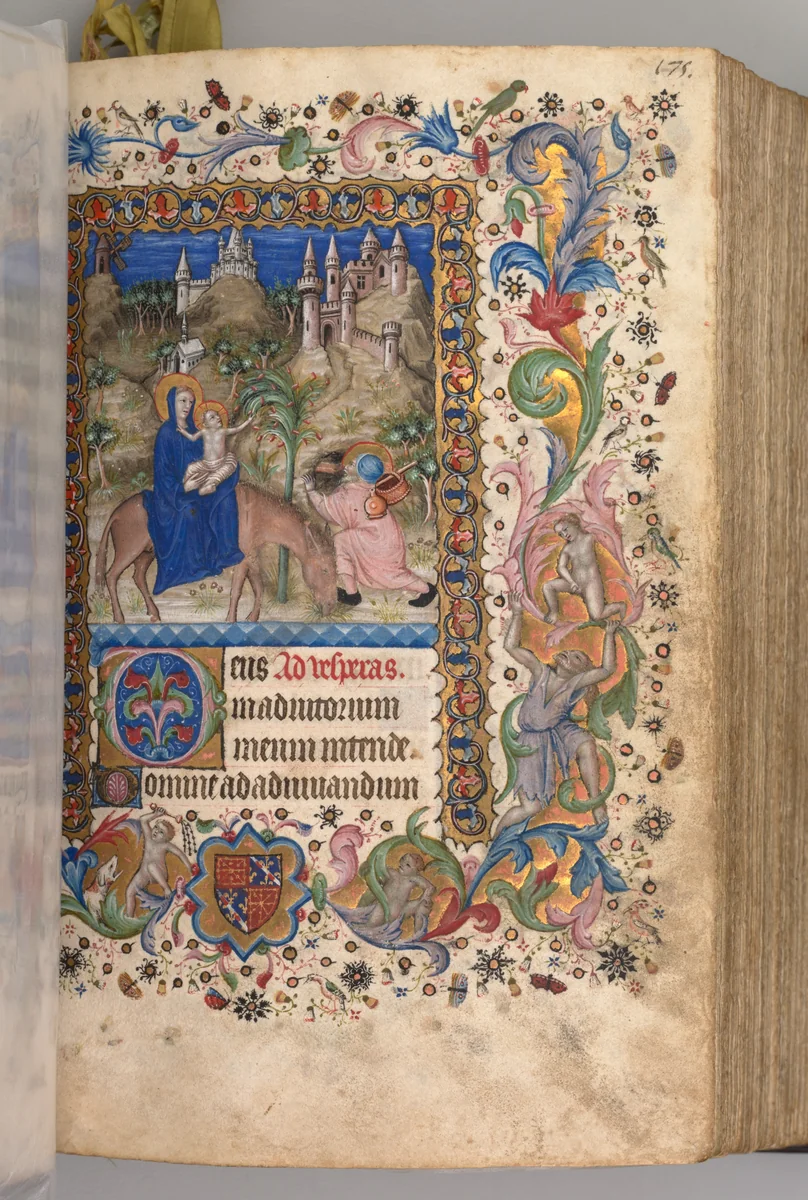 175.
eus Ad vesperas.
in adiutorium
meum intende.
Domine ad adiuuandum